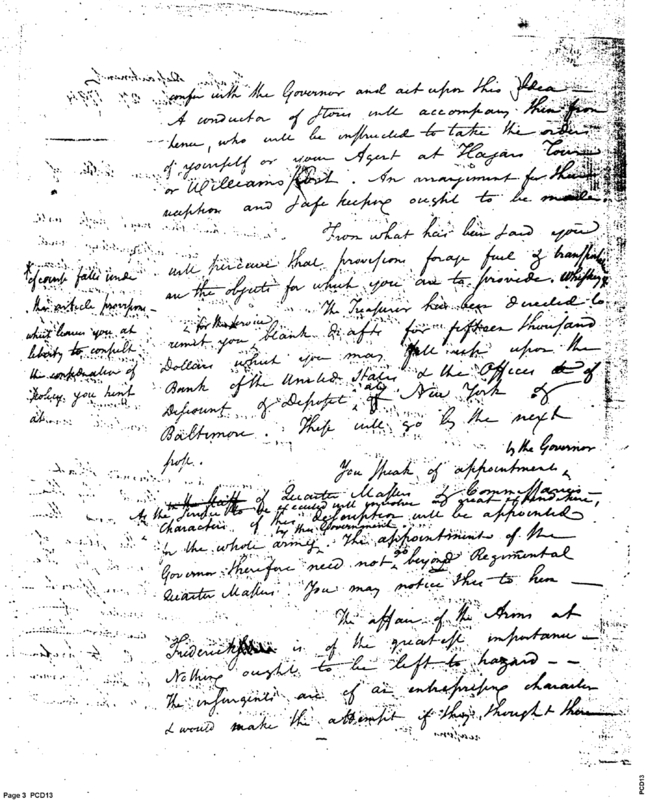 confer with the Governor and act upon this Idea —
A conductor of Stores will accompany them from
hence, who will be instructed to take the orders
of yourself or your Agent at Hagars Town
or Williams Port. An arrangement for their
reception and safe keeping ought to be made.
From what has been said you
will perceive that provisions forage fuel & transportation
are the objects for which you are to provide. Whiskey
* of course falls under
this article provision
which leaves you at
liberty to consult
the consideration of
Policy you hint
at.
The Treasurer has been directed to
for this service
remit you blank drafts for fifteen thousand
Dollars which you may fill up upon the
Bank of the United States & the Offices of
Discount & Deposit at New York &
Baltimore. These will go by the next
post.
by the Governor
You speak of appointments
of Quarter Masters & Commissaries
As the service to be executed will involve great expenditure,
Characters of this description will be appointed
by this Government
for the whole army. The appointments of the
Governor therefore need not go beyond Regimental
Quarter Masters. You may notice this to him —
The affair of the Arms at
Frederick is of the greatest importance —
Nothing ought to be left to hazard — —
The insurgents are of an enterprising character
& would make the attempt if they thought there
Page 3 PCD13
PCD13